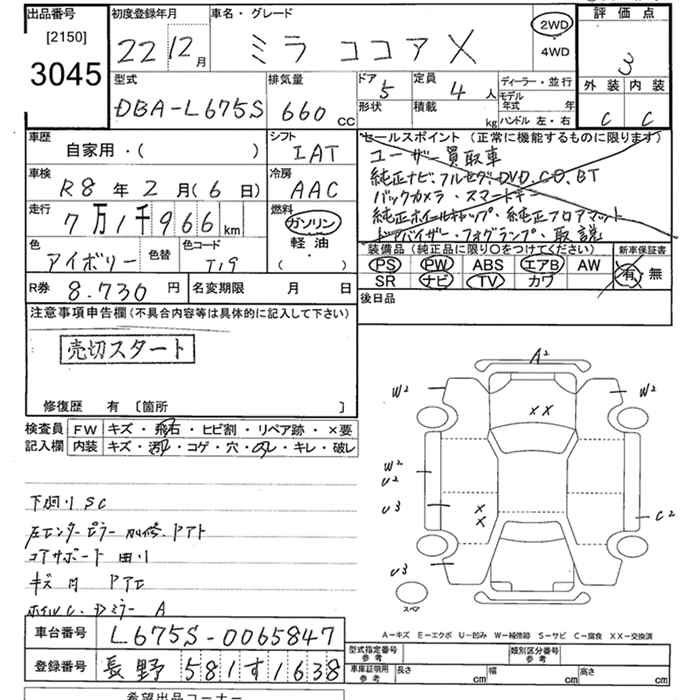 出品番号
[2150]
3045
初度登録年月
22 12月
車名・グレード
ミラ ココア X
2WD
・
4WD
評価点
3
外装 内装
C C
型式
DBA-L675S
排気量
660 CC
ドア
5
定員
4 人
形状
積載
kg
ディーラー・並行
モデル
年式 年
ハンドル 左・右
車歴
自家用・( )
シフト
IAT
車検
R8 年 2 月(6 日)
冷房
AAC
走行
7万1千966 km
燃料
ガソリン
軽油
( ・ )
色
アイボリー
色替
色コード
T19
R券 8.730 円
名変期限 月 日
セールスポイント(正常に機能するものに限ります)
ユーザー買取車
純正ナビ・フルセグ・DVD.CD.BT
バックカメラ・スマートキー
純正ホイールキャップ・純正フロアマット
ドアバイザー・フォグランプ・取説
装備品(純正品に限り○をつけてください)
新車保証書
PS PW ABS エアB AW
SR ナビ TV カワ
有・無
後日品
注意事項申告欄(不具合内容等は具体的に記入して下さい)
売切スタート
修復歴 有 〔箇所 〕
検査員
記入欄
FW キズ・飛石・ヒビ割・リペア跡・×要
内装 キズ・コゲ・穴・キレ・破レ
下廻り SC
左センターピラー 加修.アト
コアサポート 曲り
ホイルC.Dミラー A
A²
W²
W²
XX
W²
U²
U3
X
X
C²
U3
スペア
A−キズ E−エクボ U−凹み W−補修跡 S−サビ C−腐食 XX−交換済
車台番号 L675S-0065847
登録番号 長野 581す1638
型式指定番号
参考
類別区分番号
参考
車庫証明用
参考
長さ cm
幅 cm
高さ cm
希望出品コーナー